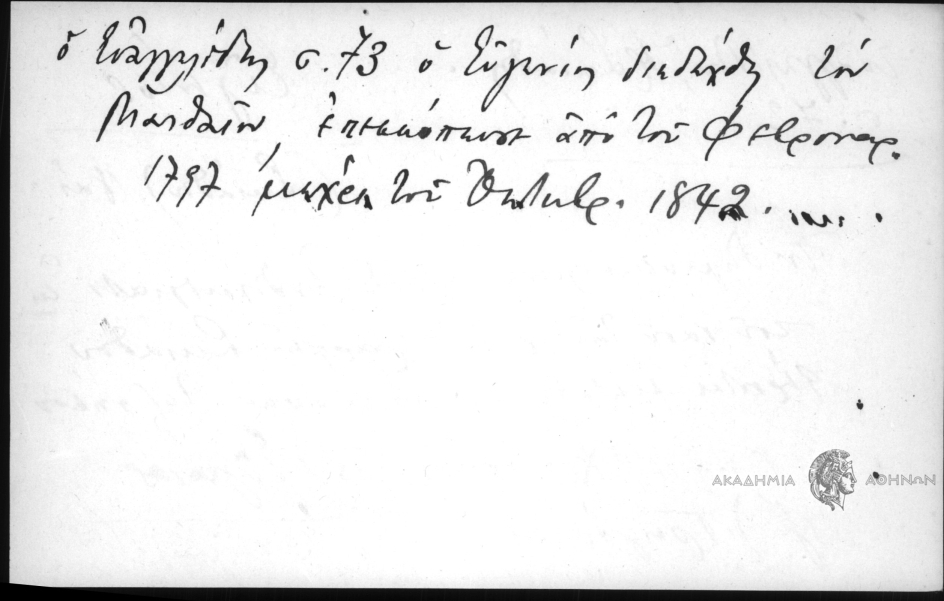 ὁ Εὐαγγελίδης σ. 73 ὁ Εὐγένιος διεδέχθη τὸν
Ματθαῖον, ἐπεσκόπευσε ἀπὸ τοῦ Φεβρουαρ.
1797 μέχρι τοῦ Ὀκτωβρ. 1842.
ΑΚΑΔΗΜΙΑ ΑΘΗΝΩΝ